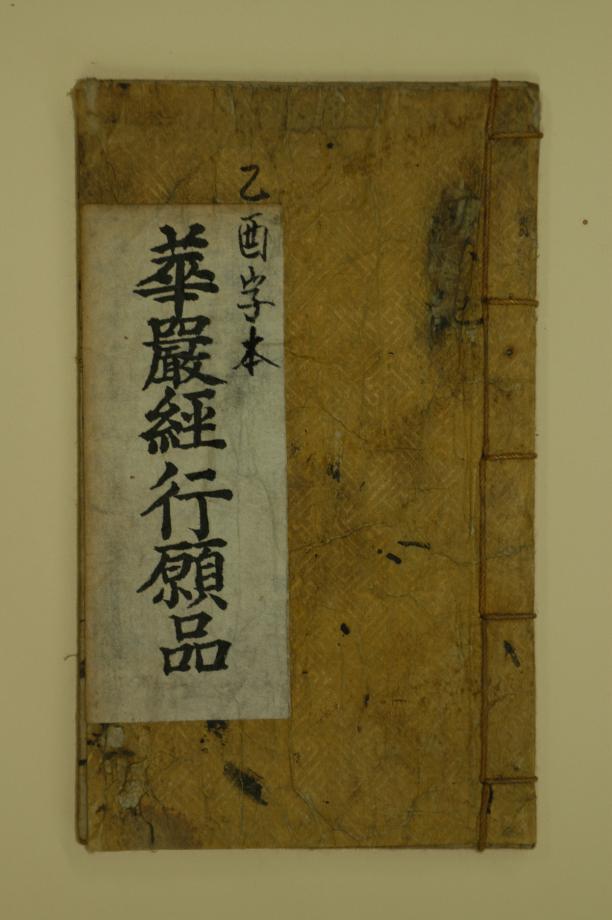 乙酉字本
華嚴經行願品